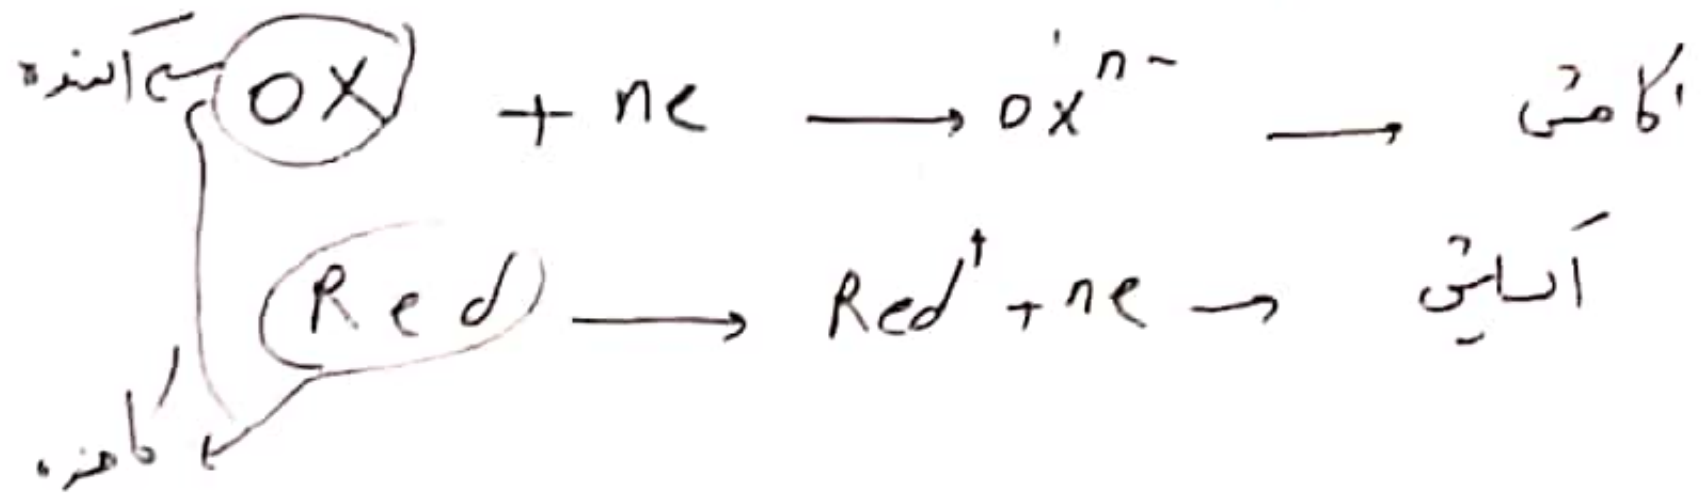 اکسنده ← OX + ne → ox^n- → کاهش
Red → Red^+ + ne → اکسایش
کاهنده